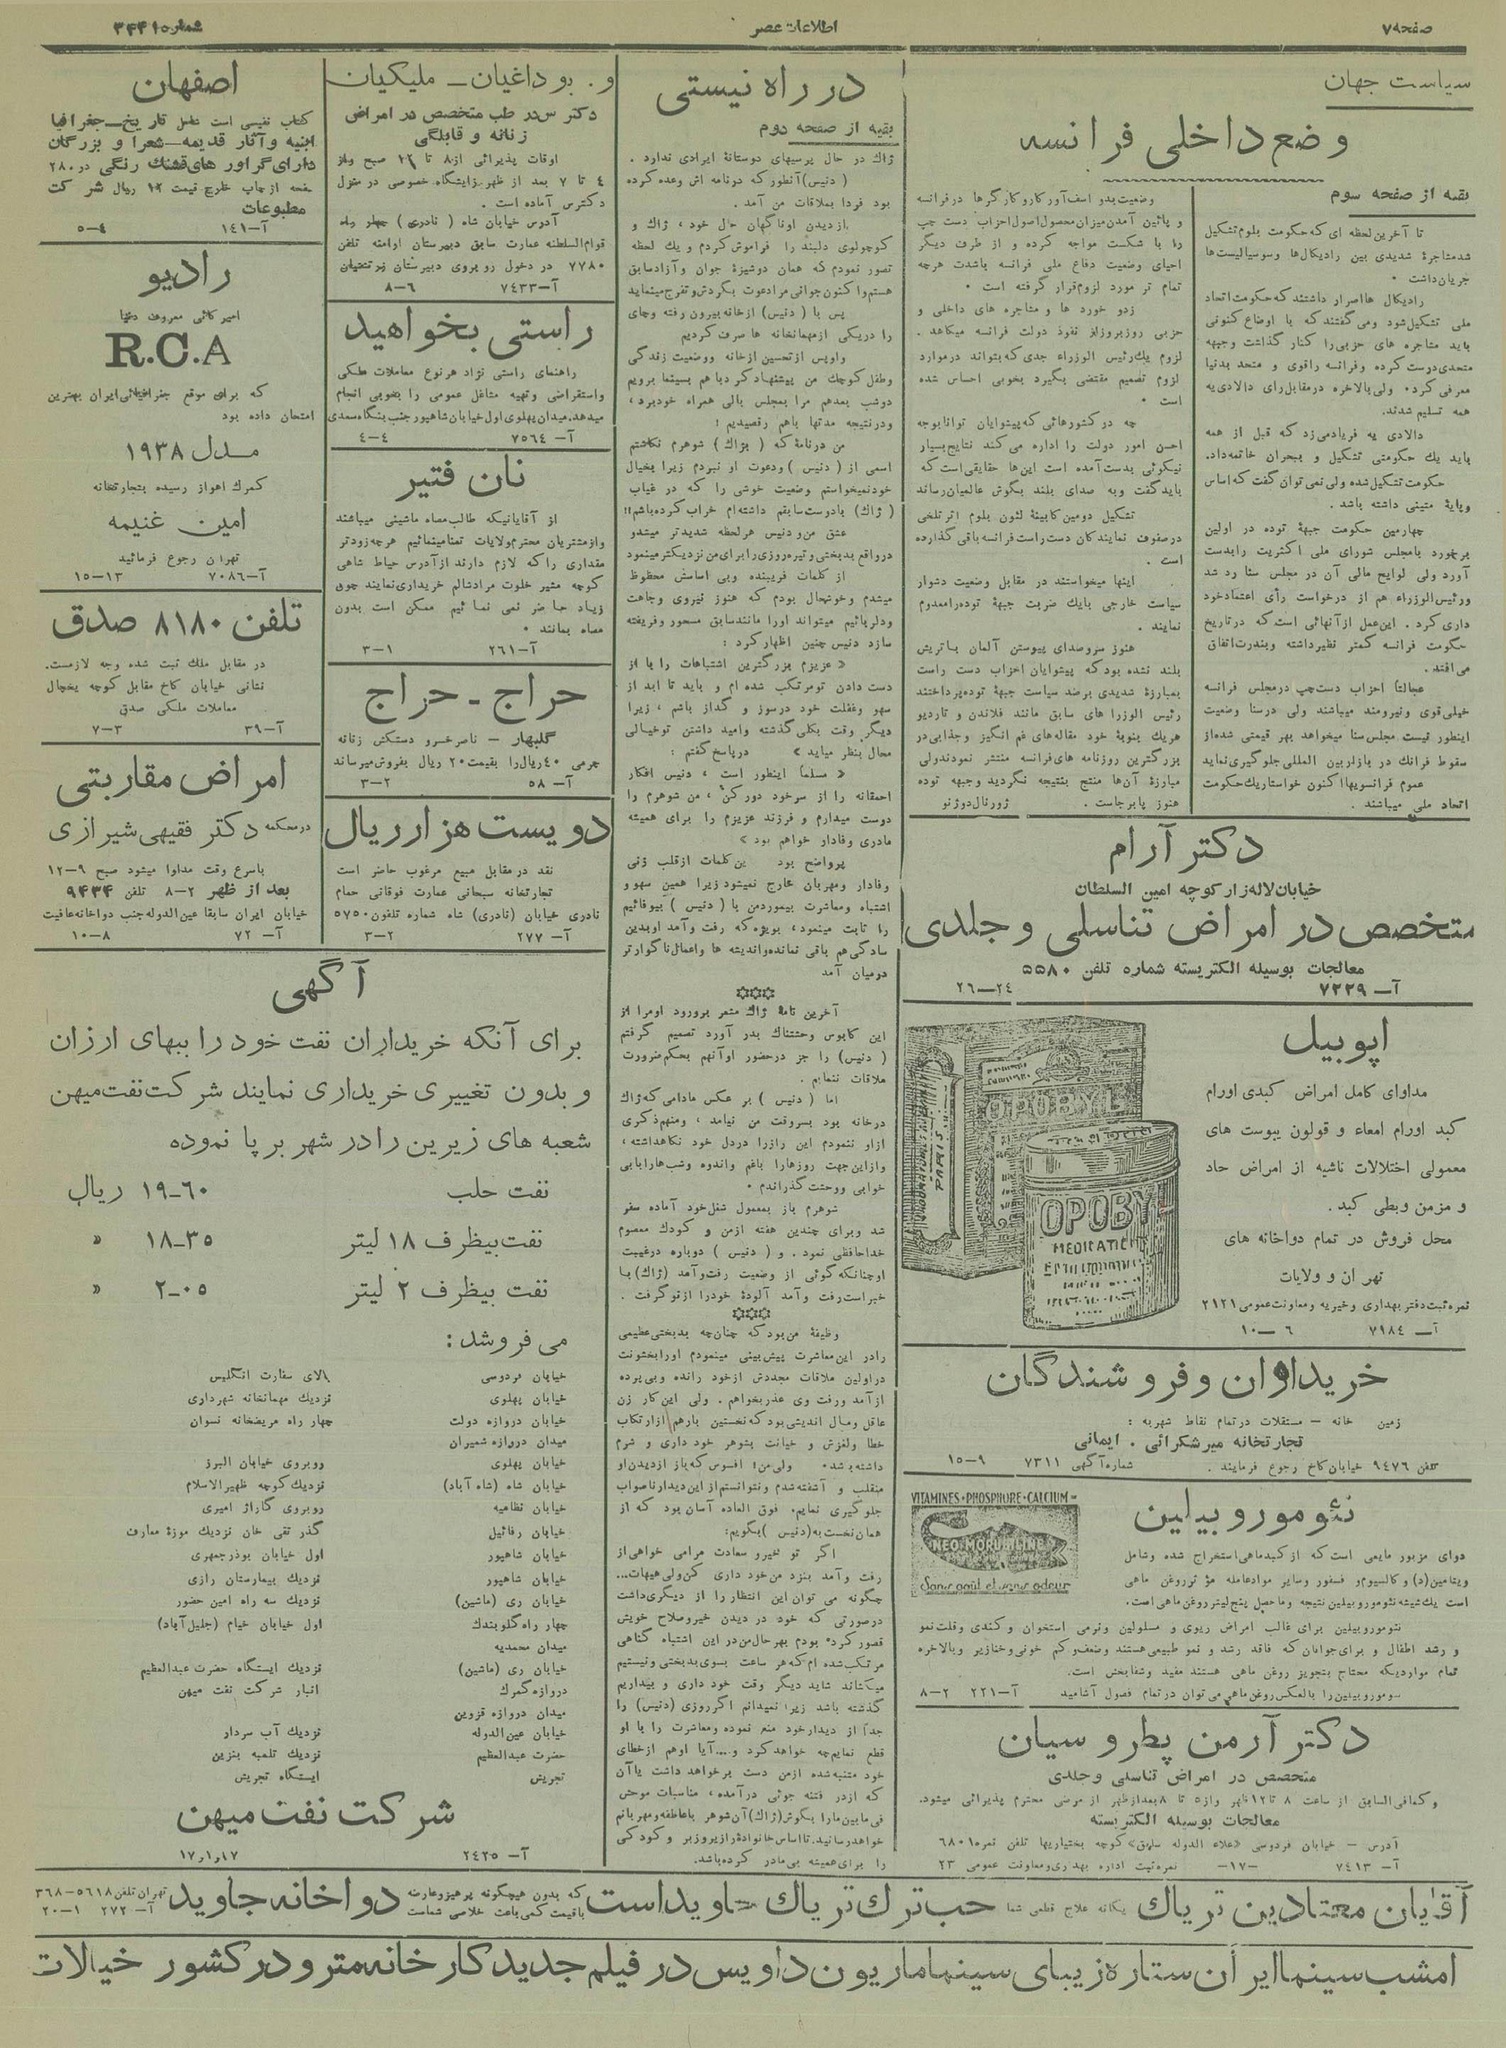 صفحه ۷
اطلاعات عصر
شماره ۳۴۴۱
سیاست جهان
وضع داخلی فرانسه
بقیه از صفحه سوم
تا آخرین لحظه ای که حکومت بلوم تشکیل
شد مشاجرهٔ شدیدی بین رادیکال‌ها و سوسیالیست‌ها
جریان داشت
رادیکال ها اصرار داشتند که حکومت اتحاد
ملی تشکیل شود و می گفتند که با اوضاع کنونی
باید مشاجره های حزبی را کنار گذاشت وجبهه
متحدی درست کرده و فرانسه را قوی و متحد بدنیا
معرفی کرد. ولی بالاخره در مقابل رای دالادی به
همه تسلیم شدند.
دالادی به فریاد می زد که قبل از همه
باید یك حکومتی تشکیل و ببحران خاتمه داد.
حکومت تشکیل شده ولی نمی توان گفت که اساس
و پایهٔ متینی داشته باشد .
چهارمین حکومت جبههٔ توده در اولین
برخورد با مجلس شورای ملی اکثریت را بدست
آورد ولی لوایح مالی آن در مجلس سنا رد شد
و رئیس الوزراء هم از درخواست رأی اعتماد خود
داری کرد . این عمل از آنهائی است که در تاریخ
حکومت فرانسه کمتر نظیر داشته و بندرت اتفاق
می افتد.
عجالتاً احزاب دست چپ در مجلس فرانسه
خیلی قوی و نیرومند میباشند ولی در سنا وضعیت
اینطور نیست مجلس سنا میخواهد بهر قیمتی شده از
سقوط فرانك در بازار بین المللی جلوگیری نماید
عموم فرانسویها اکنون خواستار یك حکومت
اتحاد ملی میباشند .
وضعیت بدو اسف آور کار و کارگرها در فرانسه
و پائین آمدن میزان محصول اصول احزاب دست چپ
را با شکست مواجه کرده و از طرف دیگر
احیای وضعیت دفاع ملی فرانسه باشدت هرچه
تمام تر مورد لزوم قرار گرفته است .
زدو خورد ها و مشاجره های داخلی و
حزبی روز بروز از نفوذ دولت فرانسه میکاهد .
لزوم یك رئیس الوزراء جدی که بتواند در موارد
لزوم تصمیم مقتضی بگیرد بخوبی احساس شده
است .
چه در کشورهائی که پیشوایان توانا بوجه
احسن امور دولت را اداره می کند نتایج بسیار
نیکوئی بدست آمده است این ها حقایقی است که
باید گفت و به صدای بلند بگوش عالمیان رساند
تشکیل دومین کابینهٔ لئون بلوم اثر تلخی
در صفوف نمایندکان دست راست فرانسه باقی گذارده
است .
اینها میخواستند در مقابل وضعیت دشوار
سیاست خارجی بایك ضربت جبههٔ توده را معدوم
نمایند .
هنوز سر و صدای پیوستن آلمان باتریش
بلند نشده بود که پیشوایان احزاب دست راست
بمبارزهٔ شدیدی برضد سیاست جبههٔ توده پرداختند
رئیس الوزرا های سابق مانند فلاندن و تاردیو
هریك بنوبهٔ خود مقاله های غم انگیز و جذابی در
بزرگترین روزنامه های فرانسه منتشر نمودند ولی
مبارزهٔ آن‌ها منتج بنتیجه نگردید و جبهه توده
هنوز پا برجاست . ژورنال دوژنو
دکتر آرام
خیابان لاله زار کوچه امین السلطان
متخصص در امراض تناسلی و جلدی
معالجات بوسیله الکتریسته شماره تلفن ۵۵۸۰
آ— ۷۲۲۹ ۲۴—۲۶
اپوبیل
مداوای کامل امراض کبدی اورام
کبد اورام امعاء و قولون یبوست های
معمولی اختلالات ناشیه از امراض حاد
و مزمن وبطی کبد .
محل فروش در تمام دواخانه های
تهران و ولایات
نمره ثبت دفتر بهداری و خیریه و معاونت عمومی ۲۱۲۱
آ— ۷۱۸۴ ۶—۱۰
OPOBYL
PARIS
OPOBY
خریداران و فروشندگان
زمین خانه — مستقلات در تمام نقاط شهر به :
تجارتخانه میرشکرائی . ایمانی
تلفن ۹۴۷۶ خیابان کاخ رجوع فرمایند . شماره آگهی ۷۳۱۱ ۹—۱۵
VITAMINES • PHOSPHORE • CALCIUM
NEO MORUBILINE
Sans goût et sans odeur
نئوموروبیلین
دوای مزبور مایعی است که از کبد ماهی استخراج شده و شامل
ویتامین (د) و کالسیوم و فسفور و سایر مواد عامله مؤثر روغن ماهی
است یك شیشه نئوموروبیلین نتیجه و ماحصل پنج لیتر روغن ماهی است.
نئوموروبیلین برای غالب امراض ریوی و مسلولین و نرمی استخوان و کندی و قلت نمو
و رشد اطفال و برای جوانان که فاقد رشد و نمو طبیعی هستند و ضعف و کم خونی و خنازیر و بالاخره
تمام مواردیکه محتاج بتجویز روغن ماهی هستند مفید و شفابخش است.
نئوموروبیلین را بالعکس روغن ماهی می توان در تمام فصول آشامید آ—۲۲۱ ۲—۸
دکتر آرمن پطروسیان
متخصص در امراض تناسلی و جلدی
و کمافی السابق از ساعت ۸ تا ۱۲ ظهر و از ۵ تا ۸ بعد از ظهر از مرضی محترم پذیرائی میشود.
معالجات بوسیله الکتریسته
آدرس — خیابان فردوسی «علاء الدوله سابق» کوچه بختیاریها تلفن نمره ۶۸۰۱
آ— ۷۴۱۳ —۱۷— نمره ثبت اداره بهداری و معاونت عمومی ۲۳
در راه نیستی
بقیه از صفحه دوم
ژاك در حال پرسیهای دوستانهٔ ایرادی ندارد .
( دنیس) آنطور که در نامه اش وعده کرده
بود فردا بملاقات من آمد .
از دیدن او ناگهان حال خود ، ژاك و
کوچولوی دلبند را فراموش کردم و یك لحظه
تصور نمودم که همان دوشیزهٔ جوان و آزاد سابق
هستم و اکنون جوانی مرا دعوت بگردش و تفرج مینماید
پس با (دنیس) از خانه بیرون رفته و چای
را در یکی از مهمانخانه ها صرف کردیم
و او پس از تحسین از خانه و وضعیت زندگی
و طفل کوچك من پیشنهاد کرد با هم بسینما برویم
دوشب بعد هم مرا بمجلس بالی همراه خود برد ،
و در نتیجه مدتها باهم رقصدیم !
من در نامهٔ که (بژاك) شوهرم نگاشتم
اسمی از ( دنیس ) و دعوت او نبردم زیرا بخیال
خود نمیخواستم وضعیت خوشی را که در غیاب
( ژاك) با دوست سابقم داشته ام خراب کرده باشم!!
عشق من و دنیس هر لحظه شدیدتر میشد و
در واقع بدبختی و تیره روزی را برای من نزدیکتر مینمود
از کلمات فریبنده و بی اساسش محظوظ
میشدم و خوشحال بودم که هنوز نیروی وجاهت
و دلربائیم میتواند او را مانند سابق مسحور و فریفته
سازد دنیس چنین اظهار کرد :
« عزیزم بزرگترین اشتباهات را با از
دست دادن تو مرتکب شده ام و باید تا ابد از
سهو و غفلت خود در سوز و گداز باشم ، زیرا
دیگر وقت بکلی گذشته و امید داشتن تو خیالی
محال بنظر میاید » در پاسخ گفتم :
« مسلماً اینطور است ، دنیس افکار
احمقانه را از سر خود دور کن ، من شوهرم را
دوست میدارم و فرزند عزیزم را برای همیشه
مادری وفادار خواهم بود »
پرواضح بود این کلمات از قلب زنی
وفادار و مهربان خارج نمیشود زیرا همین سهو و
اشتباه و معاشرت بیمورد من با ( دنیس ) بیوفائیم
را ثابت مینمود ، بویژه که رفت و آمد او بدین
سادگی هم باقی نمانده و اندیشه ها و اعمال ناگوارتر
درمیان آمد
***
آخرین نامهٔ ژاك مشعر بورود او مرا از
این کابوس وحشتناك بدر آورد تصمیم گرفتم
( دنیس) را جز در حضور او آنهم بحکم ضرورت
ملاقات ننمایم .
اما ( دنیس ) بر عکس مادامی که ژاك
در خانه بود بسر وقت من نیامد ، و منهم ذکری
از او ننمودم این راز را در دل خود نگاهداشته ،
و از این جهت روزها را باغم و اندوه و شب ها را با بی
خوابی و وحشت گذراندم .
شوهرم باز بمعمول شغل خود آماده سفر
شد و برای چندین هفته از من و کودك معصوم
خداحافظی نمود . و ( دنیس ) دوباره در غیبت
او چنانکه گوئی از وضعیت رفت و آمد (ژاك) با
خبر است رفت و آمد آلودهٔ خود را از نو گرفت .
***
وظیفهٔ من بود که چنان چه بدبختی عظیمی
را در این معاشرت پیش بینی مینمودم او را بخشونت
در اولین ملاقات مجددش از خود رانده و بی پرده
از آمد و رفت وی عذر بخواهم . ولی این کار زن
عاقل و مال اندیشی بود که نخستین بار هم از ارتکاب
خطا و لغزش و خیانت بشوهر خود داری و شرم
داشته باشد . ولی من! افسوس که باز از دیدن او
منقلب و آشفته شدم و نتوانستم از این دیدار ناصواب
جلوگیری نمایم. فوق العاده آسان بود که از
همان نخست به (دنیس) بگویم:
اگر تو خیر و سعادت مرا می خواهی از
رفت و آمد بنزد من خود داری کن ولی هیهات...
چگونه می توان این انتظار را از دیگری داشت
در صورتی که خود در دیدن خیر و صلاح خویش
قصور کرده بودم بهر حال من در این اشتباه گناهی
مرتکب شده ام که هر ساعت بسوی بدبختی و نیستیم
میکشاند شاید دیگر وقت خود داری و بیداریم
گذشته باشد زیرا نمیدانم اگر روزی (دنیس) را
جداً از دیدار خود منع نموده و معاشرت را با او
قطع نمایم چه خواهد کرد و... آیا او هم از خطای
خود متنبه شده از من دست بر خواهد داشت یا آن
که از در فتنه جوئی در آمده ، مناسبات موحش
فی مابین ما را بگوش (ژاك) آن شوهر با عاطفه و مهربانم
خواهد رسانید. تا اساس خانوادهٔ را زیر و زبر و کودکی
را برای همیشه بی مادر کرده باشد.
و. بوداغیان ـ ملیکیان
دکترس در طب متخصص در امراض
زنانه و قابلگی
اوقات پذیرائی از ۸ تا ۱۲ صبح و از
۴ تا ۷ بعد از ظهر زایشگاه خصوصی در منزل
دکترس آماده است .
آدرس خیابان شاه ( نادری ) چهار راه
قوام السلطنه عمارت سابق دبیرستان ارامنه تلفن
۷۷۸۰ در دخول رو بروی دبیرستان نوتختیان
آ— ۷۴۳۳ ۶—۸
راستی بخواهید
راهنمای راستی نژاد هر نوع معاملات ملکی
و استقراضی و تهیه مشاغل عمومی را بخوبی انجام
میدهد. میدان پهلوی اول خیابان شاهپور جنب بنگاه سعدی
آ— ۷۵۶۴ ۴—۴
نان فتیر
از آقایانیکه طالب مصاه ماشینی میباشند
و از مشتریان محترم ولایات تمنا مینمائیم هرچه زودتر
مقداری را که لازم دارند از آدرس حیاط شاهی
کوچه مشیر خلوت مراد شالم خریداری نمایند چون
زیاد حاضر نمی نمائیم ممکن است بدون
مصاه بمانند .
آ—۲۶۱ ۱—۳
حراج ـ حراج
گلبهار — ناصر خسرو دستکش زنانه
چرمی ۴۰ ریال را بقیمت ۲۰ ریال بفروش میرساند
آ— ۵۸ ۲—۳
دویست هزار ریال
نقد در مقابل مبیع مرغوب حاضر است
تجارتخانه سبحانی عمارت فوقانی حمام
نادری خیابان (نادری) شاه شماره تلفون ۵۷۵۰
آ— ۲۷۷ ۲—۳
اصفهان
کتاب نفیسی است شامل تاریخ—جغرافیا
ابنیه و آثار قدیمه—شعرا و بزرگان
دارای گراور های قشنك رنگی در ۲۸۰
صفحه از چاپ خارج قیمت ۱۲ ریال شرکت
مطبوعات
آ—۱۴۱ ۴—۵
رادیو
امیرکائی معروف دنیا
R.C.A
که برای موقع جغرافیائی ایران بهترین
امتحان داده بود
مدل ۱۹۳۸
گمرك اهواز رسیده بتجارتخانه
امین غنیمه
تهران رجوع فرمائید
آ—۷۰۸۶ ۱۳—۱۵
تلفن ۸۱۸۰ صدق
در مقابل ملك ثبت شده وجه لازمست.
نشانی خیابان کاخ مقابل کوچه یخچال
معاملات ملکی صدق
آ—۳۹ ۳—۷
امراض مقاربتی
در محکمه دکتر فقیهی شیرازی
باسرع وقت مداوا میشود صبح ۹—۱۲
بعد از ظهر ۲—۸ تلفن ۹۴۳۴
خیابان ایران سابقا عین الدوله جنب دواخانه عافیت
آ— ۷۲ ۸—۱۰
آگهی
برای آنکه خریداران نفت خود را ببهای ارزان
و بدون تغییری خریداری نمایند شرکت نفت میهن
شعبه های زیرین را در شهر بر پا نموده
نفت حلب ۶۰-۱۹ ریال
نفت بیظرف ۱۸ لیتر ۳۵-۱۸ «
نفت بیظرف ۲ لیتر ۰۵-۲ «
می فروشد :
خیابان فردوسی بالای سفارت انگلیس
خیابان پهلوی نزدیك مهمانخانه شهرداری
خیابان دروازه دولت چهار راه مریضخانه نسوان
میدان دروازه شمیران
خیابان پهلوی روبروی خیابان البرز
خیابان شاه (شاه آباد) نزدیك کوچه ظهیرالاسلام
خیابان نظامیه روبروی گاراژ امیری
خیابان رفائیل گذر تقی خان نزدیك موزهٔ معارف
خیابان شاهپور اول خیابان بوذرجمهری
خیابان شاهپور نزدیك بیمارستان رازی
خیابان ری (ماشین) نزدیك سه راه امین حضور
چهار راه گلوبندك اول خیابان خیام (جلیل آباد)
میدان محمدیه
خیابان ری (ماشین) نزدیك ایستگاه حضرت عبدالعظیم
دروازه گمرك انبار شرکت نفت میهن
میدان دروازه قزوین
خیابان عین الدوله نزدیك آب سردار
حضرت عبدالعظیم نزدیك تلمبه بنزین
تجریش ایستگاه تجریش
شرکت نفت میهن
آ— ۲۴۲۵ ۱۷ر۱ر۱۷
آقایان معتادین تریاك یگانه علاج قطعی شما حب ترك تریاك جاوید است که بدون هیچگونه پرهیز و عارضه با قیمت کمی باعث خلاصی شماست دواخانه جاوید تهران تلفن ۵۶۱۸—۳۶۸ آ— ۲۷۲ ۱—۲۰
امشب سینما ایران ستاره زیبای سینما ماریون داویس در فیلم جدید کارخانه مترو در کشور خیالات